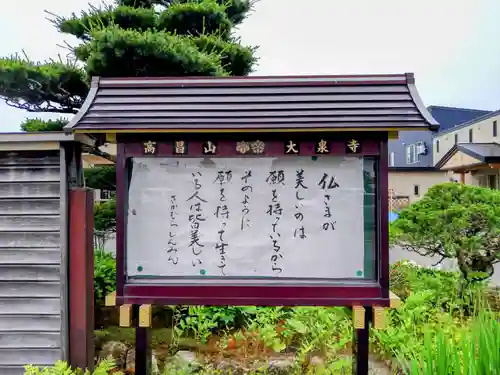 高昌山 大泉寺
仏さまが
美しいのは
願を持っているから
そのように
願を持って生きて
いる人は皆美しい
さかむらしんみん